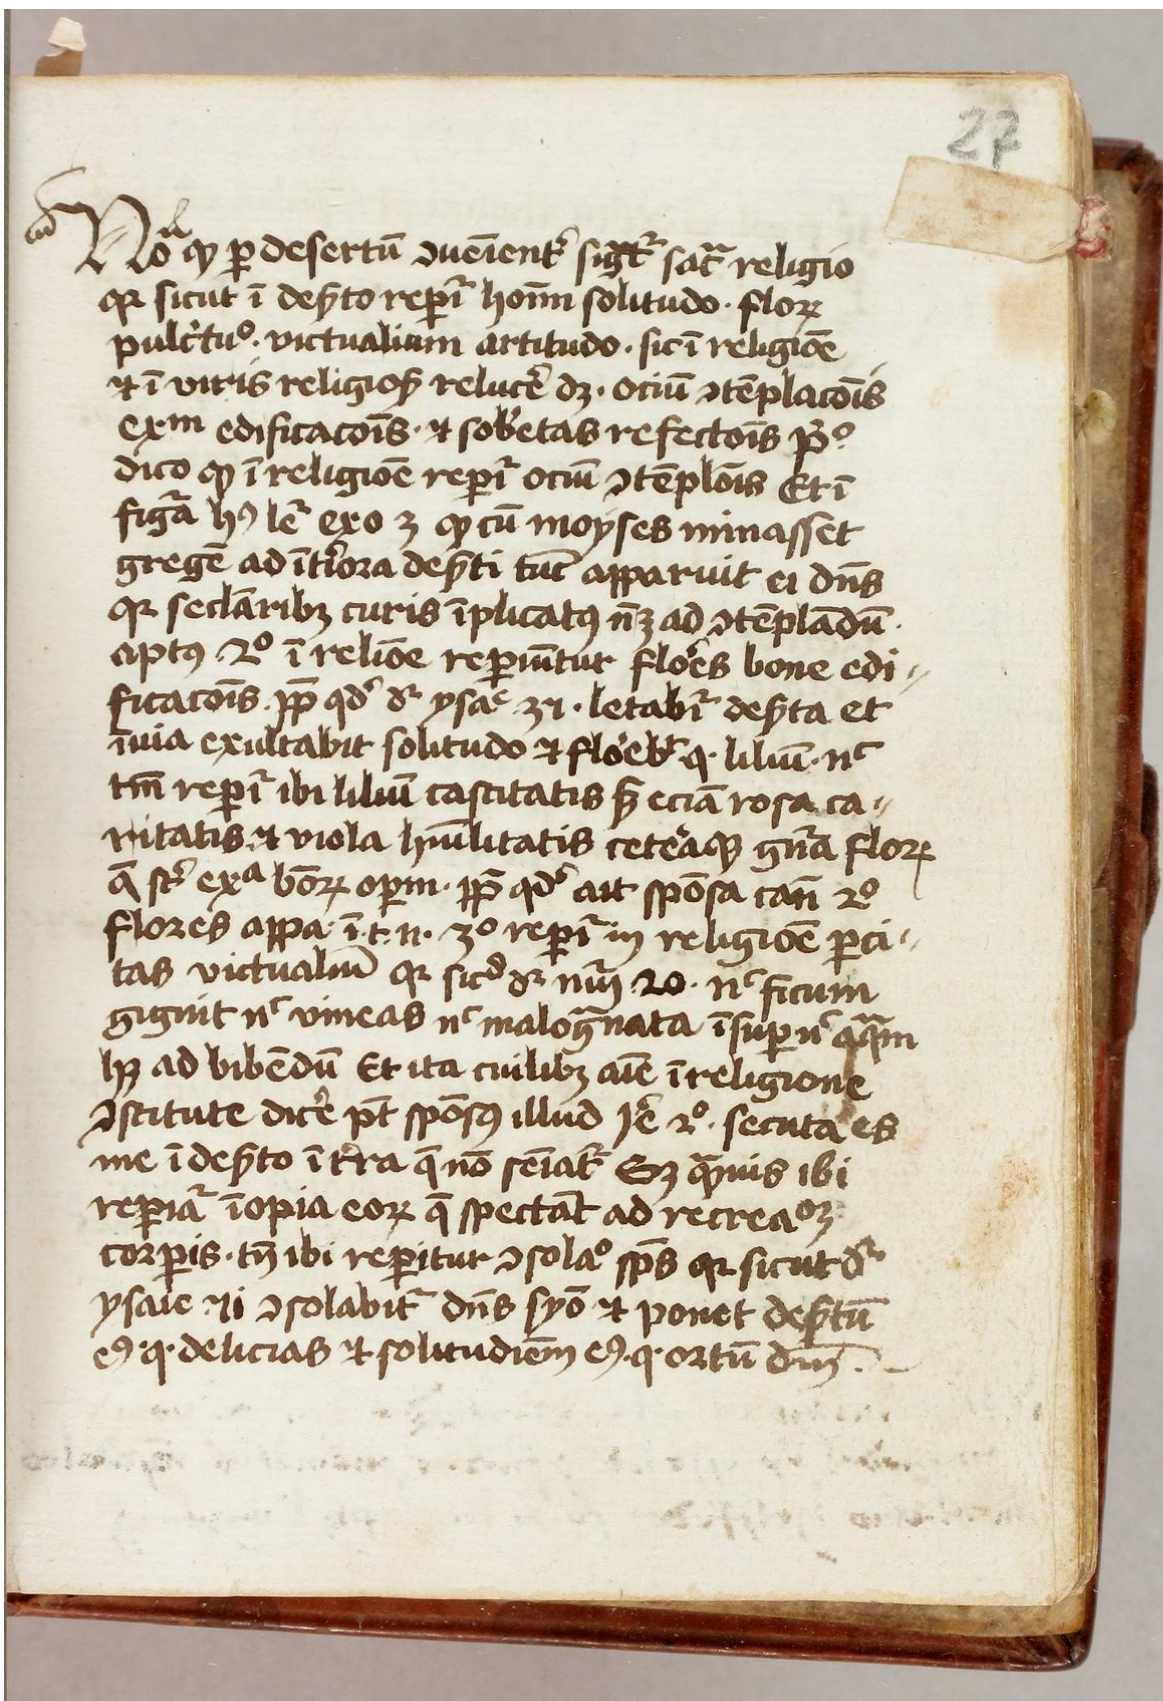 27
No q̃ ꝑ desertū ꝯueīentʼ sacͣ religio
qꝛ sicut ī desʼto reperiʳ hoīm solitudo · floꝝ
pulcʼtuͦ · victualium artitudo · sic ī religiōe
⁊ ī viris religiosʼ relucēʼ dꝫ · ociū ꝯtēplacōis
exᵐ edificacōis · ⁊ sobʼetas refectōis pͦ
dico ꝙ ī religiōe reperiʳ ociū ꝯtēplōis Et ī
figᷓa hꝰ leʳ exo 3 ꝙ cū moyses minasset
gregē ad ītʼiora desʼti tūc apparuit ei dn̄s
qꝛ seclāribꝫ curis īplicatꝰ ad ꝯtēpladū ·
aptꝰ · 2º ī reliōe reperiūtur floʼes bone edi〃
ficacōis · ꝓp̄ qdʼ dʳ ysaᵉ 31 · letabiʳ desʼta et
īuia exultabit solitudo ⁊ floʼebᵗ · q · liliū · nᶜ
tm̄ reperiʳ ibi liliū castitatis sʼ eciā rosa ca〃
ritatis ⁊ viola hūilitatis ceteʼaqꝫ gn̄a floꝝ
q̄ stʼ exᵃ bōoꝝ operm · ꝓp̄ qdʼ ait spōsa can̄ 2º
flores appa · ī · t · n · 3º reperiʳ in religiōe ꝑci〃
tas victualiū qꝛ sicᵈ dʳ nūi 20 · nᶜ ficum
gignit nᶜ vineas nᶜ malogᷓnata īsuꝑ nᶜ aqᷓm
hꝫ ad bibēdū Et ita cuilibꝫ aīe ī religione
ꝯstitute dicʼe pt̄ spōsꝰ illud Jeʼ 2º · secuta es
me ī desʼto ī tʼra q̄ nō sēiatʳ Sꝫ qᷓuis ibi
reperiaʳ īopia eoꝝ q̄ spectāt ad recreaᵒꝫ
corꝑis · tn̄ ibi reperitur ꝯsolaº sp̄s qꝛ sicut dʳ
ysaie ꝯsolabitʳ dn̄s syō ⁊ ponet desʼtū
eꝰ · q · delicias ⁊ solitudīem eꝰ · q · ortū dn̄i ·